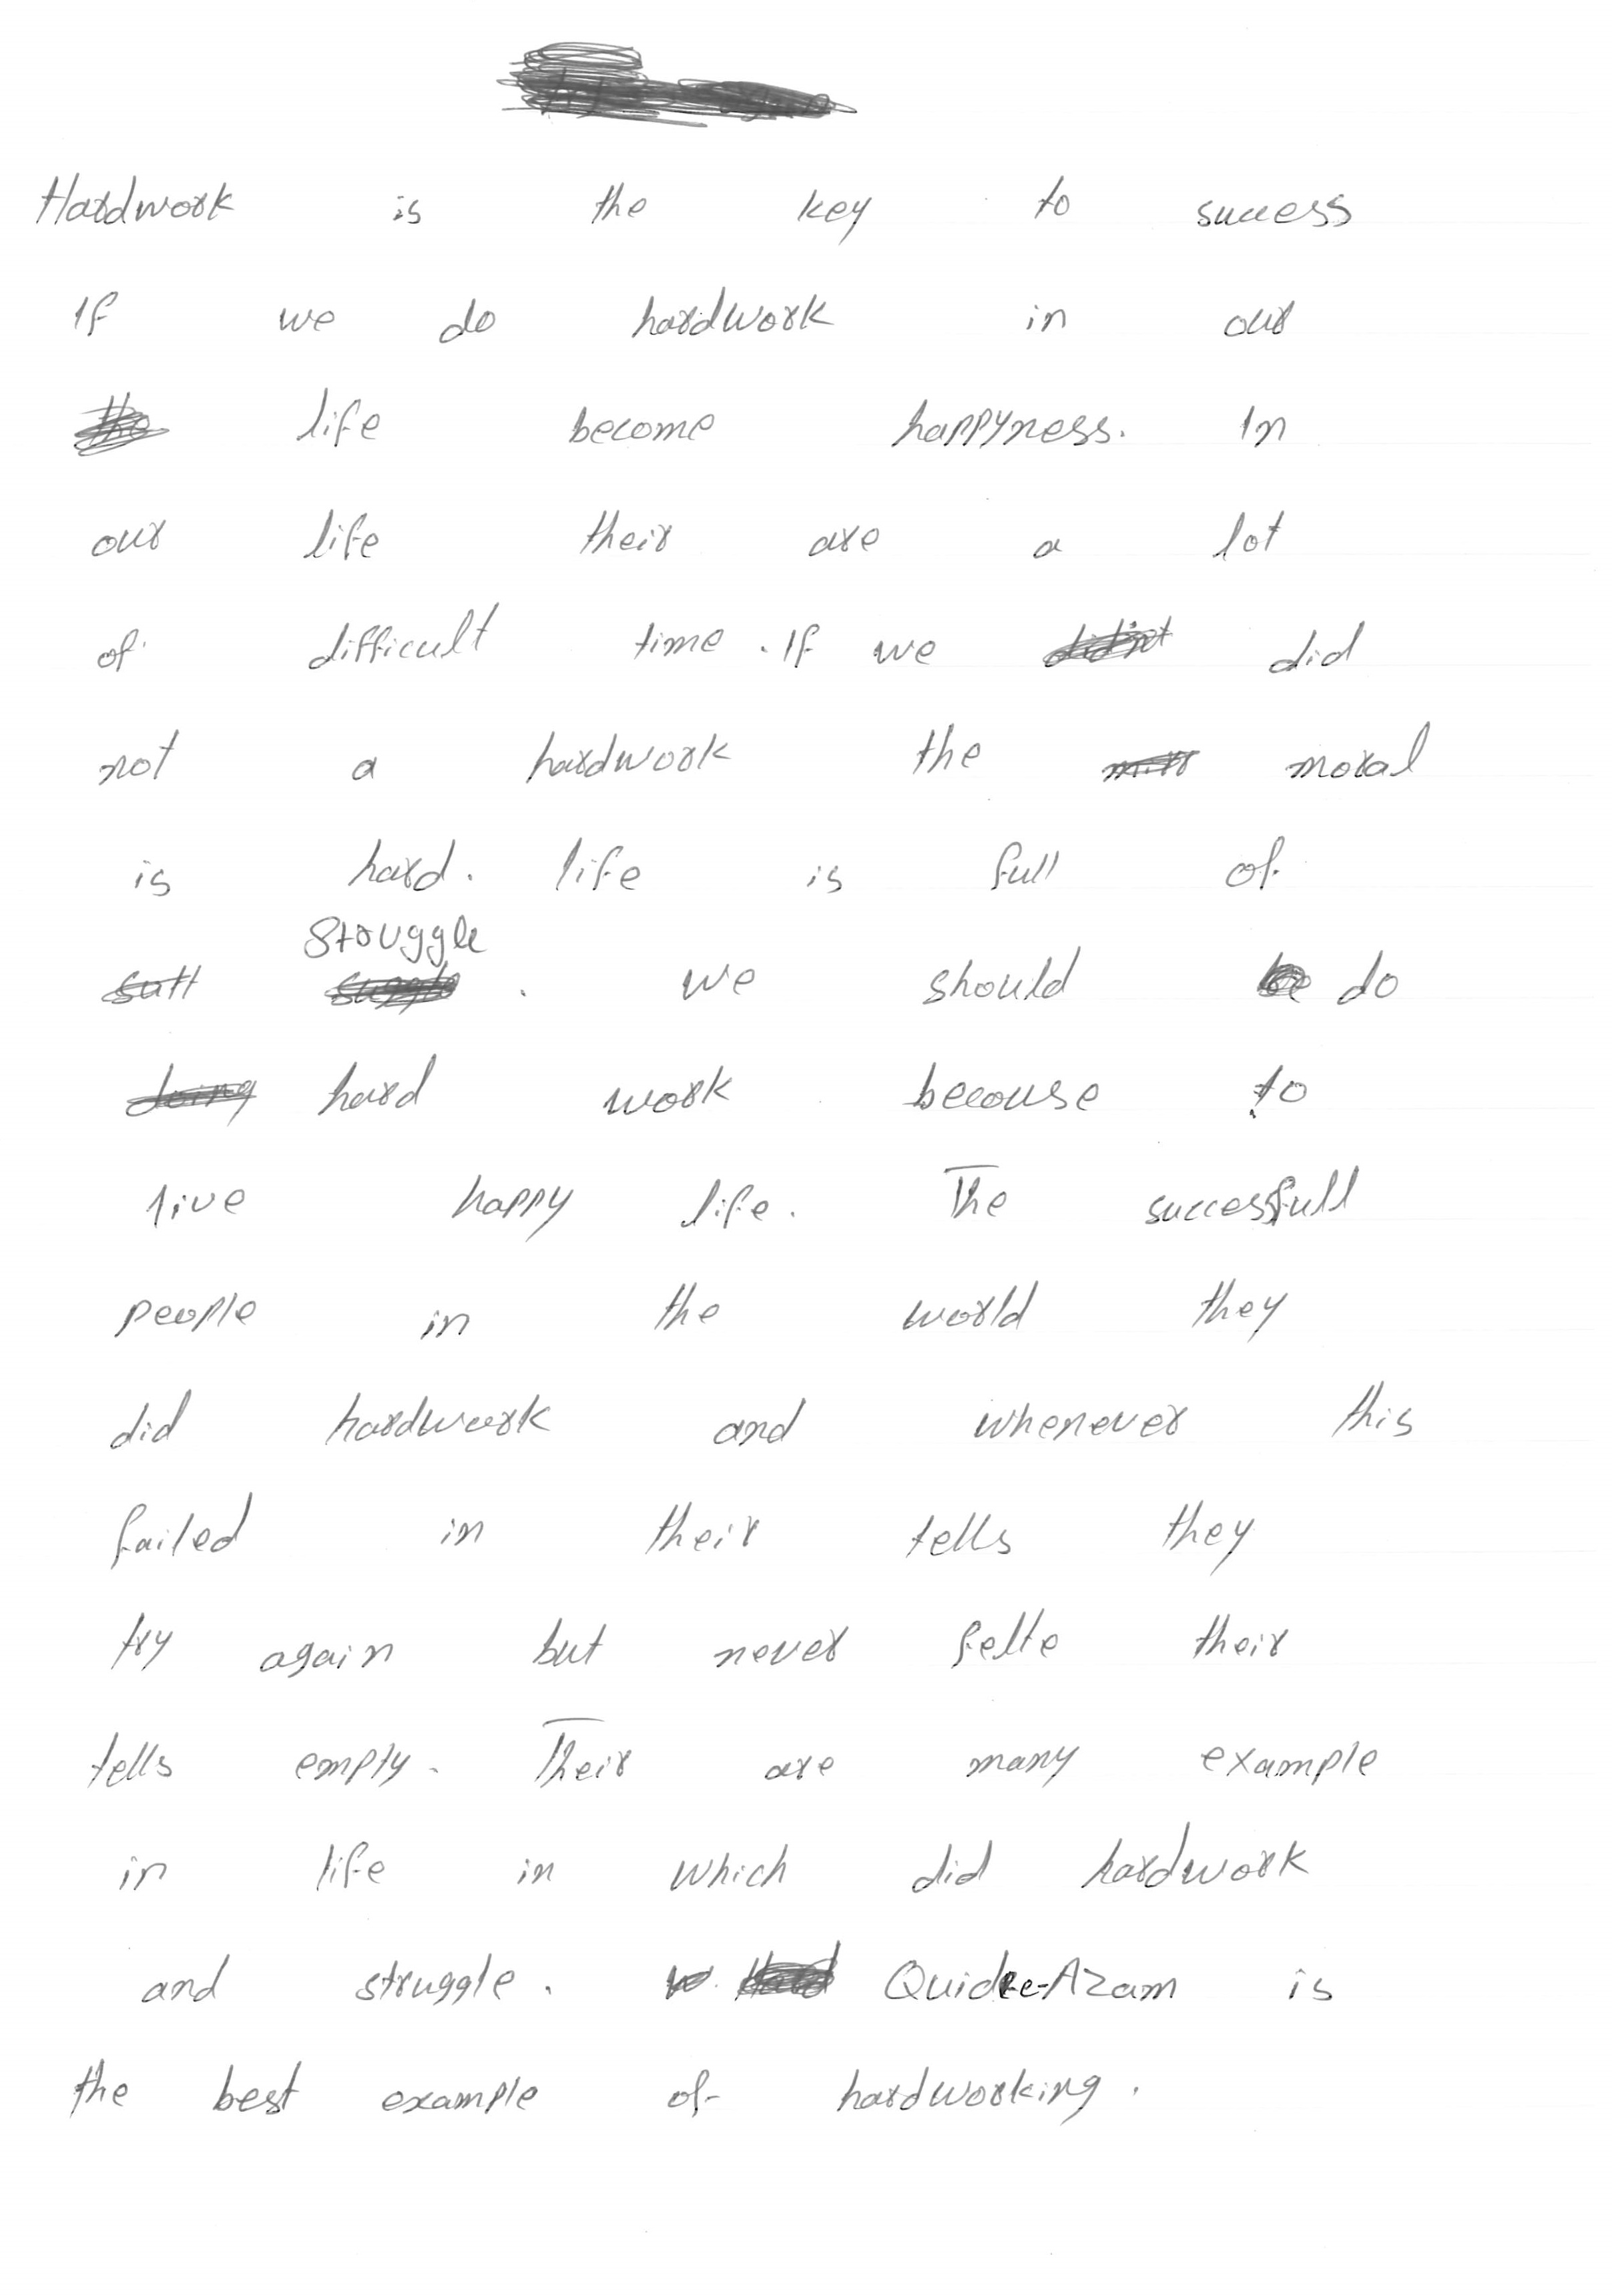 Hardwork is the key to success
If we do hardwork in our
life become happyness. In
our life their are a lot
of difficult time. If we did
not a hardwork the moral
is hard. life is full of
struggle . we should do
hard work becouse to
live happy life. The successfull
people in the world they
did hardwork and whenever this
failed in their tells they
try again but never felte their
tells empty. Their are many example
in life in which did hardwork
and struggle. Quide-Azam is
the best example of hardworking.